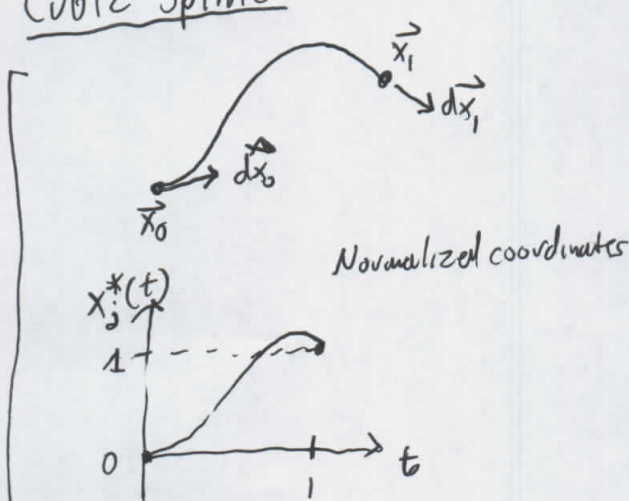 Cubic Spline
x⃗₁
dx⃗₁
dx⃗₀
x⃗₀
Normalized coordinates
xⱼ*(t)
1
0
t
1